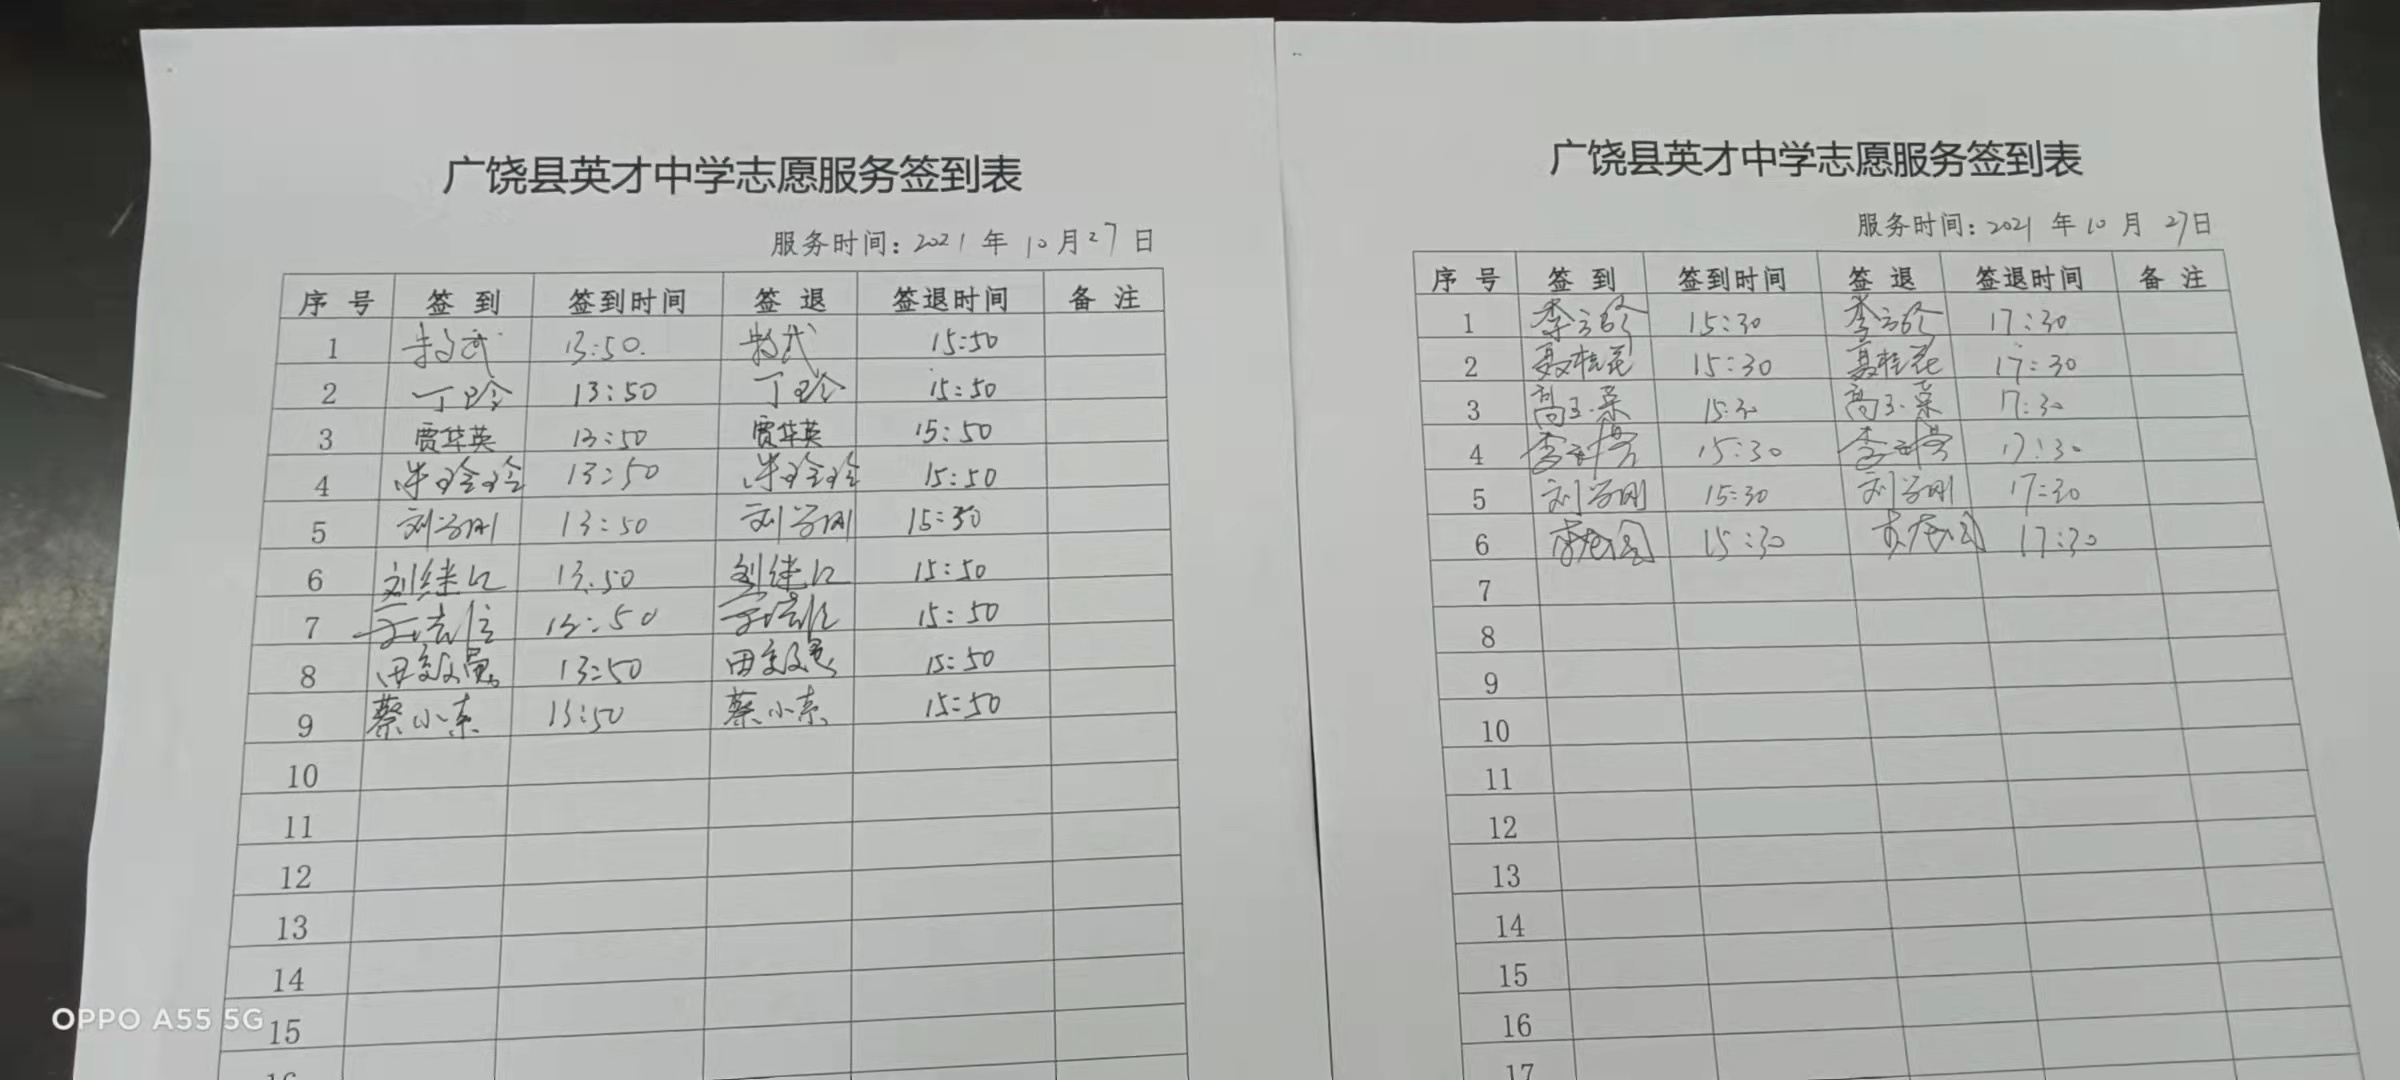 广饶县英才中学志愿服务签到表
服务时间：2021 年 10 月 27 日
序 号 签 到 签到时间 签 退 签退时间 备 注
1 13:50. 15:50
2 丁玲 13:50 丁玲 15:50
3 贾华英 13:50 贾华英 15:50
4 朱玲玲 13:50 朱玲玲 15:50
5 刘学刚 13:50 刘学刚 15:50
6 刘继江 13:50 刘继江 15:50
7 13:50 15:50
8 13:50 15:50
9 蔡小东 13:50 蔡小东 15:50
10
11
12
13
14
15
16
广饶县英才中学志愿服务签到表
服务时间：2021 年 10 月 27日
序 号 签 到 签到时间 签 退 签退时间 备 注
1 15:30 17:30
2 聂桂花 15:30 聂桂花 17:30
3 15:30 17:30
4 15:30 17:30
5 刘学刚 15:30 刘学刚 17:30
6 15:30 17:30
7
8
9
10
11
12
13
14
15
16
17
OPPO A55 5G